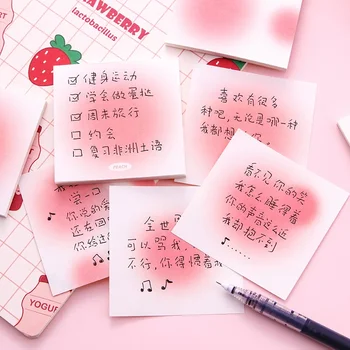 STRAWBERRY
lactobacillus
健身运动
学会做蛋挞
周末旅行
约会
复习非洲土语
喜欢有很多
种吧,无论是哪一种
我都想
看不见你的笑
我怎么睡得着
你的声音这么近
我却抱不到
全世界
可以骂我
不行,你得惯着我
学
你说的
还在
你给
YOGU